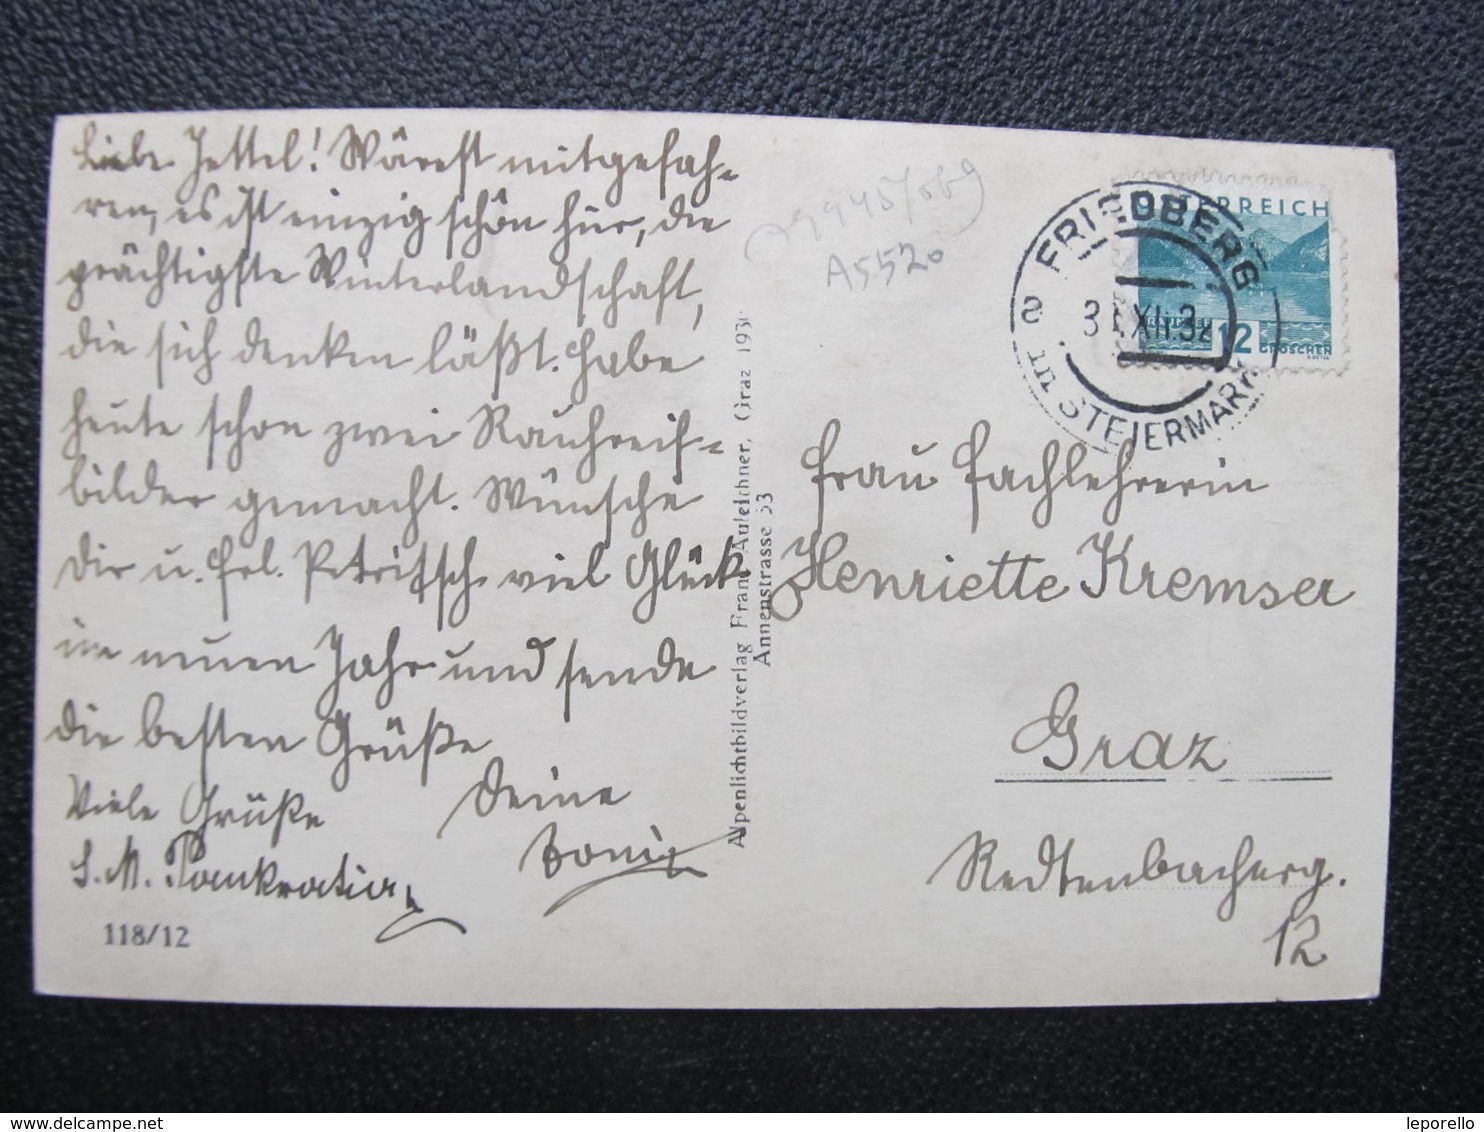 Liebe Jettel! Wärest mitgefah-
ren, es ist einzig schön hier, die
prächtigste Winterlandschaft,
die sich denken läßt. Habe
heute schon zwei Rauhreif-
bilder gemacht. Wünsche
Dir u. Frl. Petritsch viel Glück
im neuen Jahr und sende
die besten Grüße
Deine
Toni
Viele Grüße
S. M. Pankratia
118/12
Alpenlichtbildverlag Franz Auleichner, Graz 193
Annenstrasse 53
A5520
ÖSTERREICH
12
GROSCHEN
FRIEDBERG
31.XII.32
in STEIERMARK
Frau Fachlehrerin
Henriette Kremser
Graz
Redtenbacherg.
12
leporello